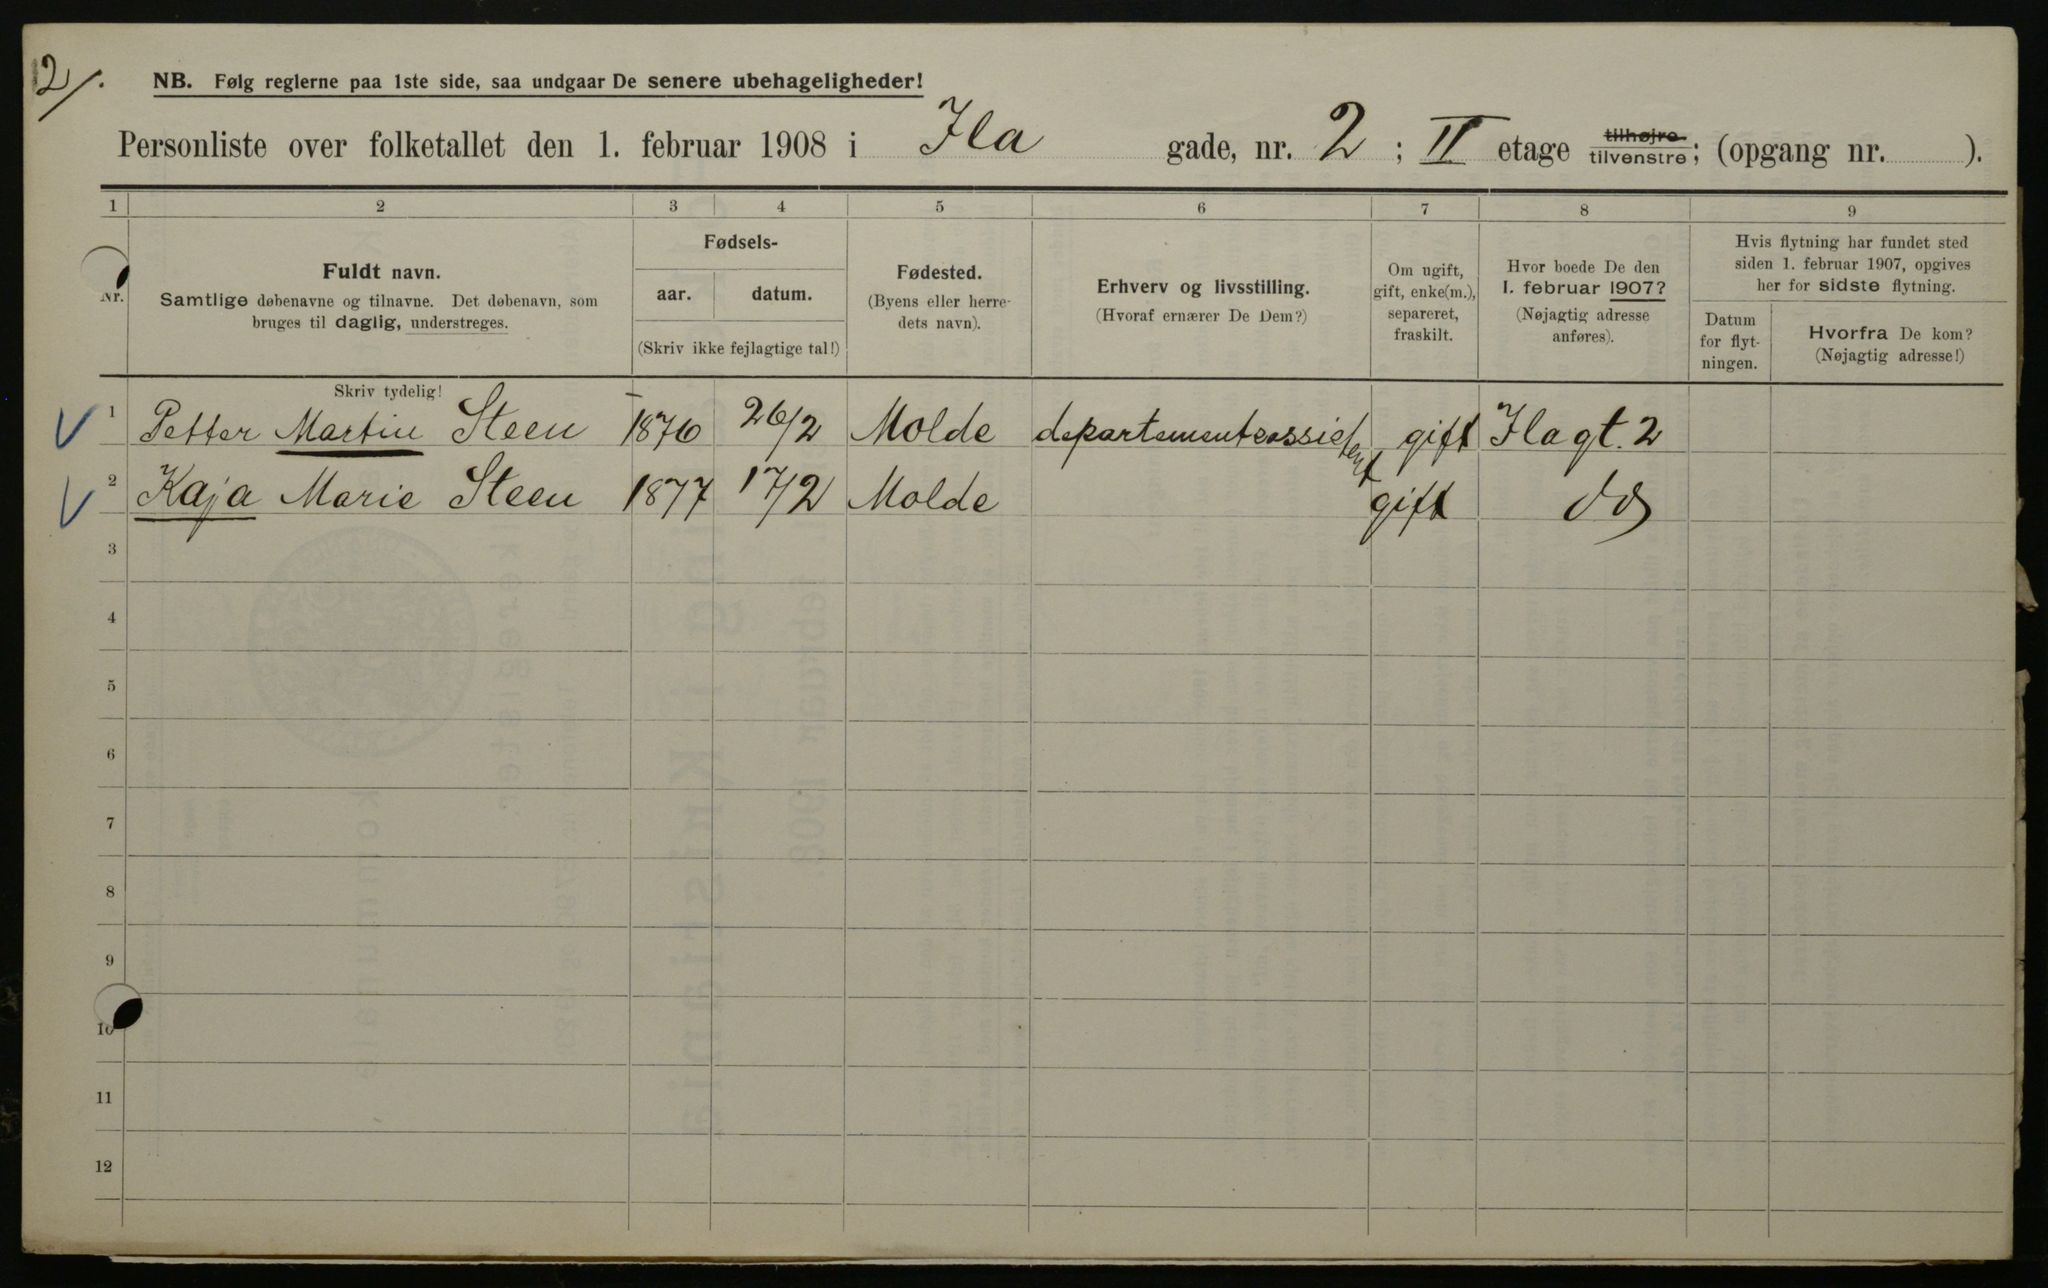 2/.
NB. Følg reglerne paa 1ste side, saa undgaar De senere ubehageligheder!
Personliste over folketallet den 1. februar 1908 i Ila gade, nr. 2 ; II etage tilhøjre tilvenstre; (opgang nr. ).
1 2 3 4 5 6 7 8 9
Nr.
Fuldt navn.
Samtlige døbenavne og tilnavne. Det døbenavn, som
bruges til daglig, understreges.
Fødsels-
aar. datum.
(Skriv ikke fejlagtige tal!)
Fødested.
(Byens eller herre-
dets navn).
Erhverv og livsstilling.
(Hvoraf ernærer De Dem?)
Om ugift,
gift, enke(m.),
separeret,
fraskilt.
Hvor boede De den
1. februar 1907?
(Nøjagtig adresse
anføres).
Hvis flytning har fundet sted
siden 1. februar 1907, opgives
her for sidste flytning.
Datum
for flyt-
ningen.
Hvorfra De kom?
(Nøjagtig adresse!)
Skriv tydelig!
1 Petter Martin Steen 1876 26/2 Molde departementsassistent gift Ila gt. 2
2 Kaja Marie Steen 1877 17/2 Molde gift do
3
4
5
6
7
8
9
10
11
12